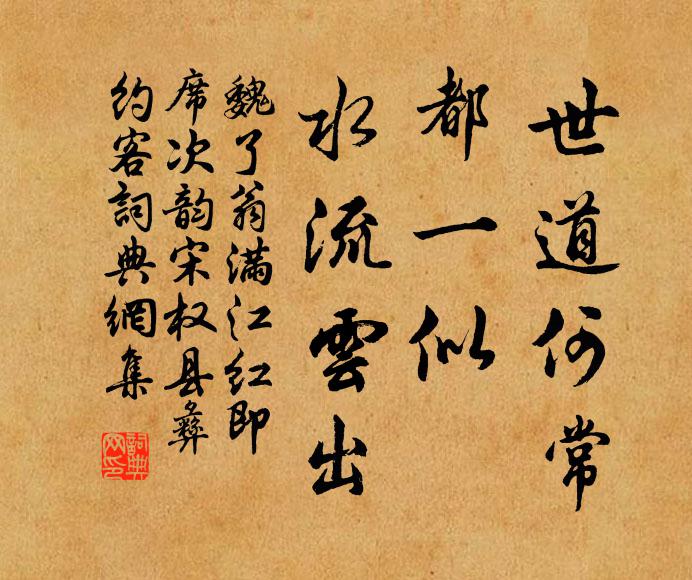 世道何常
都一似
水流雲出
魏了翁满江红即
席次韵宋权县彝
约客詞典網集
詞典
网印